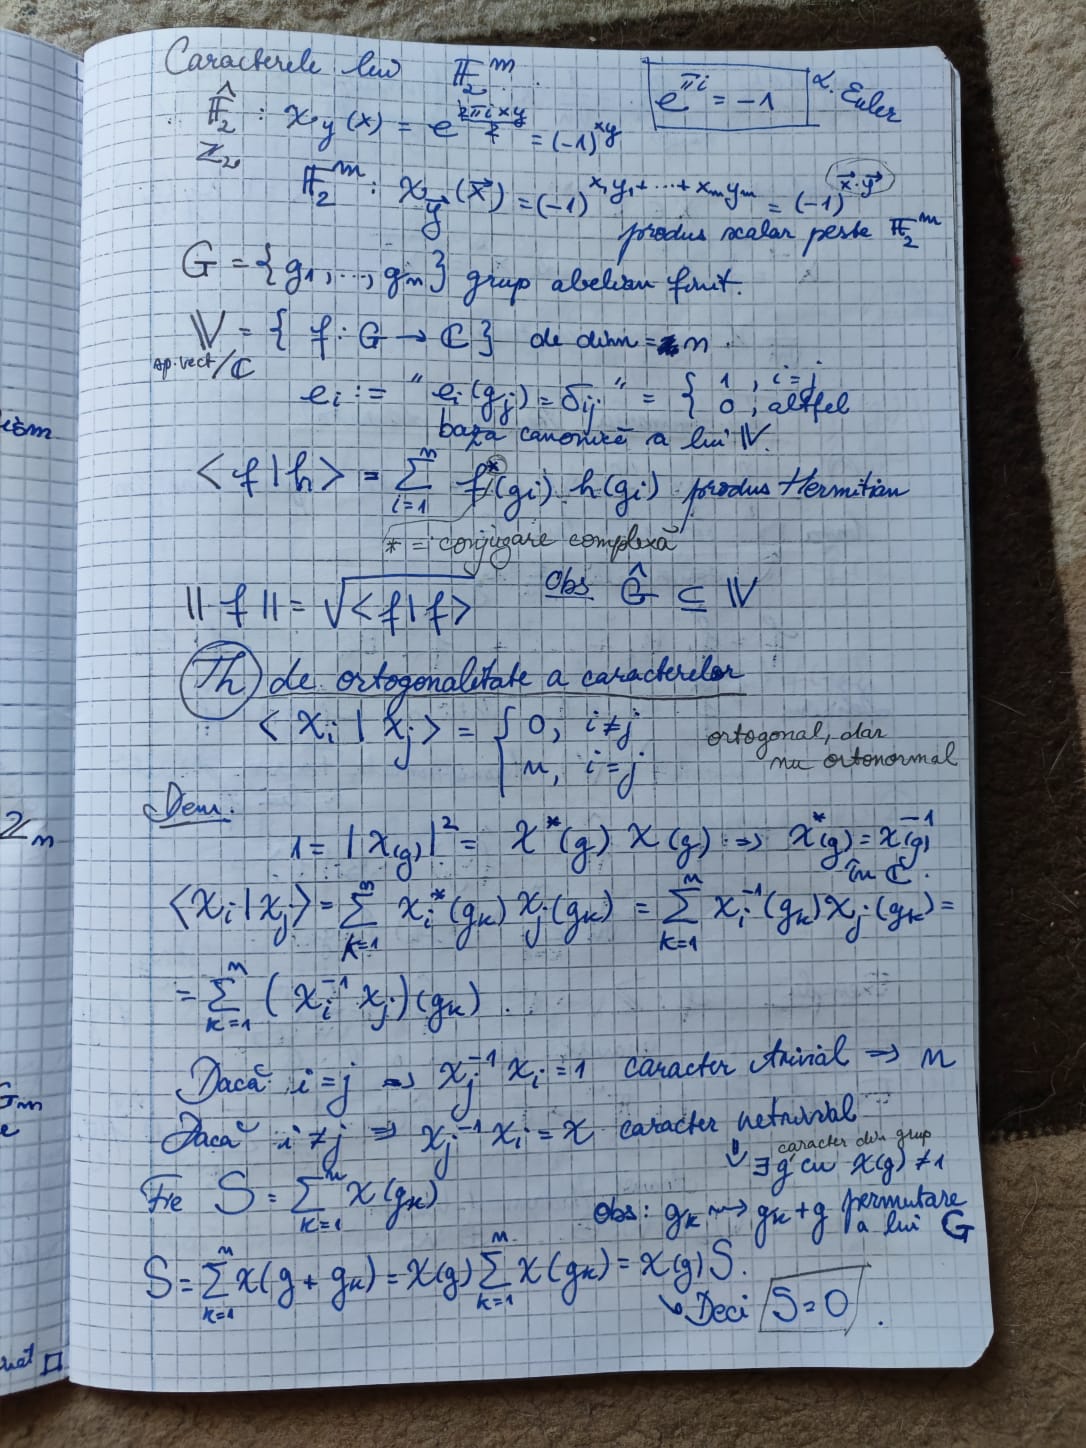 Caracterele lui 𝔽₂ᵐ.
e^{πi} = -1 L. Euler
𝔽̂₂ : χ_y(x) = e^{2πixy/2} = (-1)^{xy}
ℤ₂
𝔽₂ᵐ : χ_{y⃗}(x⃗) = (-1)^{x₁y₁+...+xₘyₘ} = (-1)^{x⃗·y⃗}
produs scalar peste 𝔽₂ᵐ
G = {g₁,...,gₙ} grup abelian finit.
𝕍 = { f : G → ℂ } de dim = n.
sp.vect/ℂ
eᵢ := " eᵢ(gⱼ) = δᵢⱼ " = { 1, i=j
0, altfel
baza canonică a lui 𝕍.
<f|h> = Σ_{i=1}^{n} f*(gᵢ) h(gᵢ) produs Hermitian
* = conjugare complexă
||f|| = √<f|f> Obs Ĝ ⊆ 𝕍
Th de ortogonalitate a caracterelor
<χᵢ | χⱼ> = { 0, i≠j
n, i=j
ortogonal, dar
nu ortonormal
Dem.
1 = |χ(g)|² = χ*(g) χ(g) ⇒ χ*(g) = χ⁻¹(g)
în ℂ.
<χᵢ|χⱼ> = Σ_{k=1}^{n} χᵢ*(gₖ) χⱼ(gₖ) = Σ_{k=1}^{n} χᵢ⁻¹(gₖ)χⱼ(gₖ) =
= Σ_{k=1}^{n} (χᵢ⁻¹ χⱼ)(gₖ).
Dacă i = j ⇒ χⱼ⁻¹ χᵢ = 1 caracter trivial ⇒ n
Dacă i ≠ j ⇒ χⱼ⁻¹ χᵢ = χ caracter netrivial
caracter din grup
⇓ ∃ g cu χ(g) ≠ 1
Fie S = Σ_{k=1}^{n} χ(gₖ)
obs: gₖ ⇝ gₖ + g permutare
a lui G
S = Σ_{k=1}^{n} χ(g + gₖ) = χ(g) Σ_{k=1}^{n} χ(gₖ) = χ(g) S.
↳ Deci S = 0.
ℤₙ